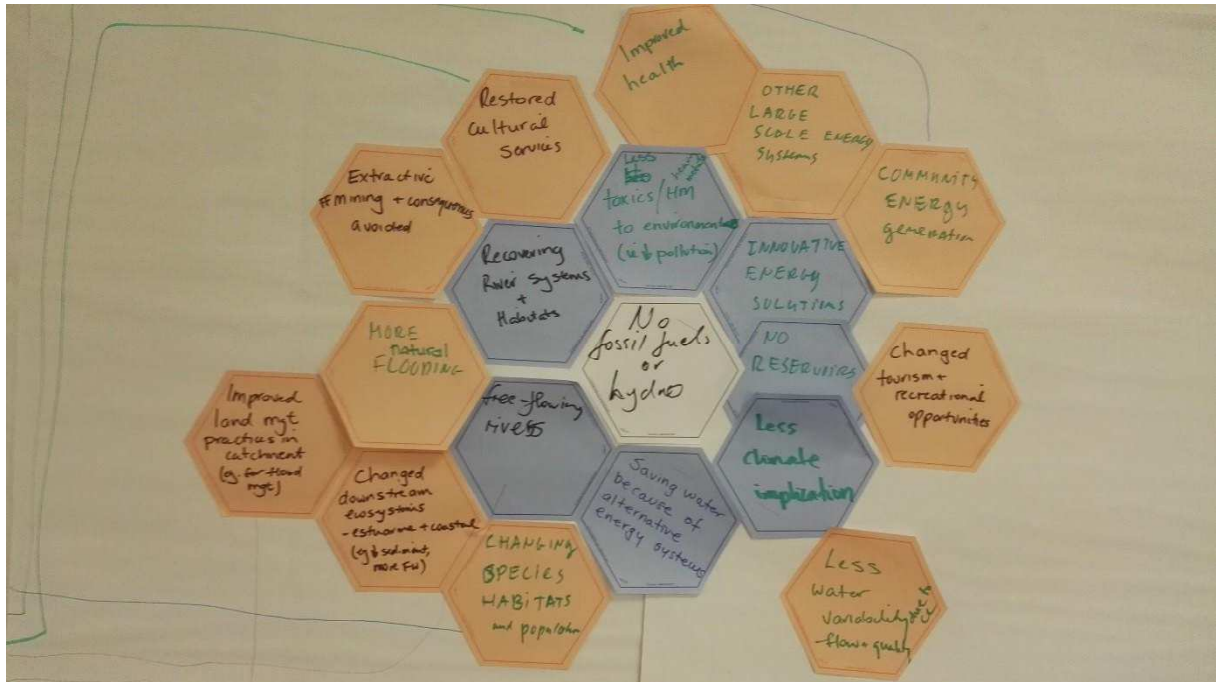 Improved
health
Restored
cultural
services
OTHER
LARGE
SCALE ENERGY
Systems
Extractive
FF mining + consequences
avoided
Less
toxics/HM
heavy metals
to environment
(ie ↓ pollution)
COMMUNITY
ENERGY
generation
Recovering
River systems
+
Habitats
INNOVATIVE
ENERGY
SOLUTIONS
No
fossil fuels
or
hydro
MORE
natural
FLOODING
NO
RESERVOIRS
Changed
tourism +
recreational
opportunities
Improved
land mgt
practices in
catchment
(eg. for flood
mgt)
free-flowing
rivers
Less
climate
implication
Changed
downstream
ecosystems
- estuarine + coastal
(eg ↓ sediment,
more FW)
Saving water
because of
alternative
energy systems
CHANGING
SPECIES
HABITATS
and population
Less
water
variability due to
- flow + quality